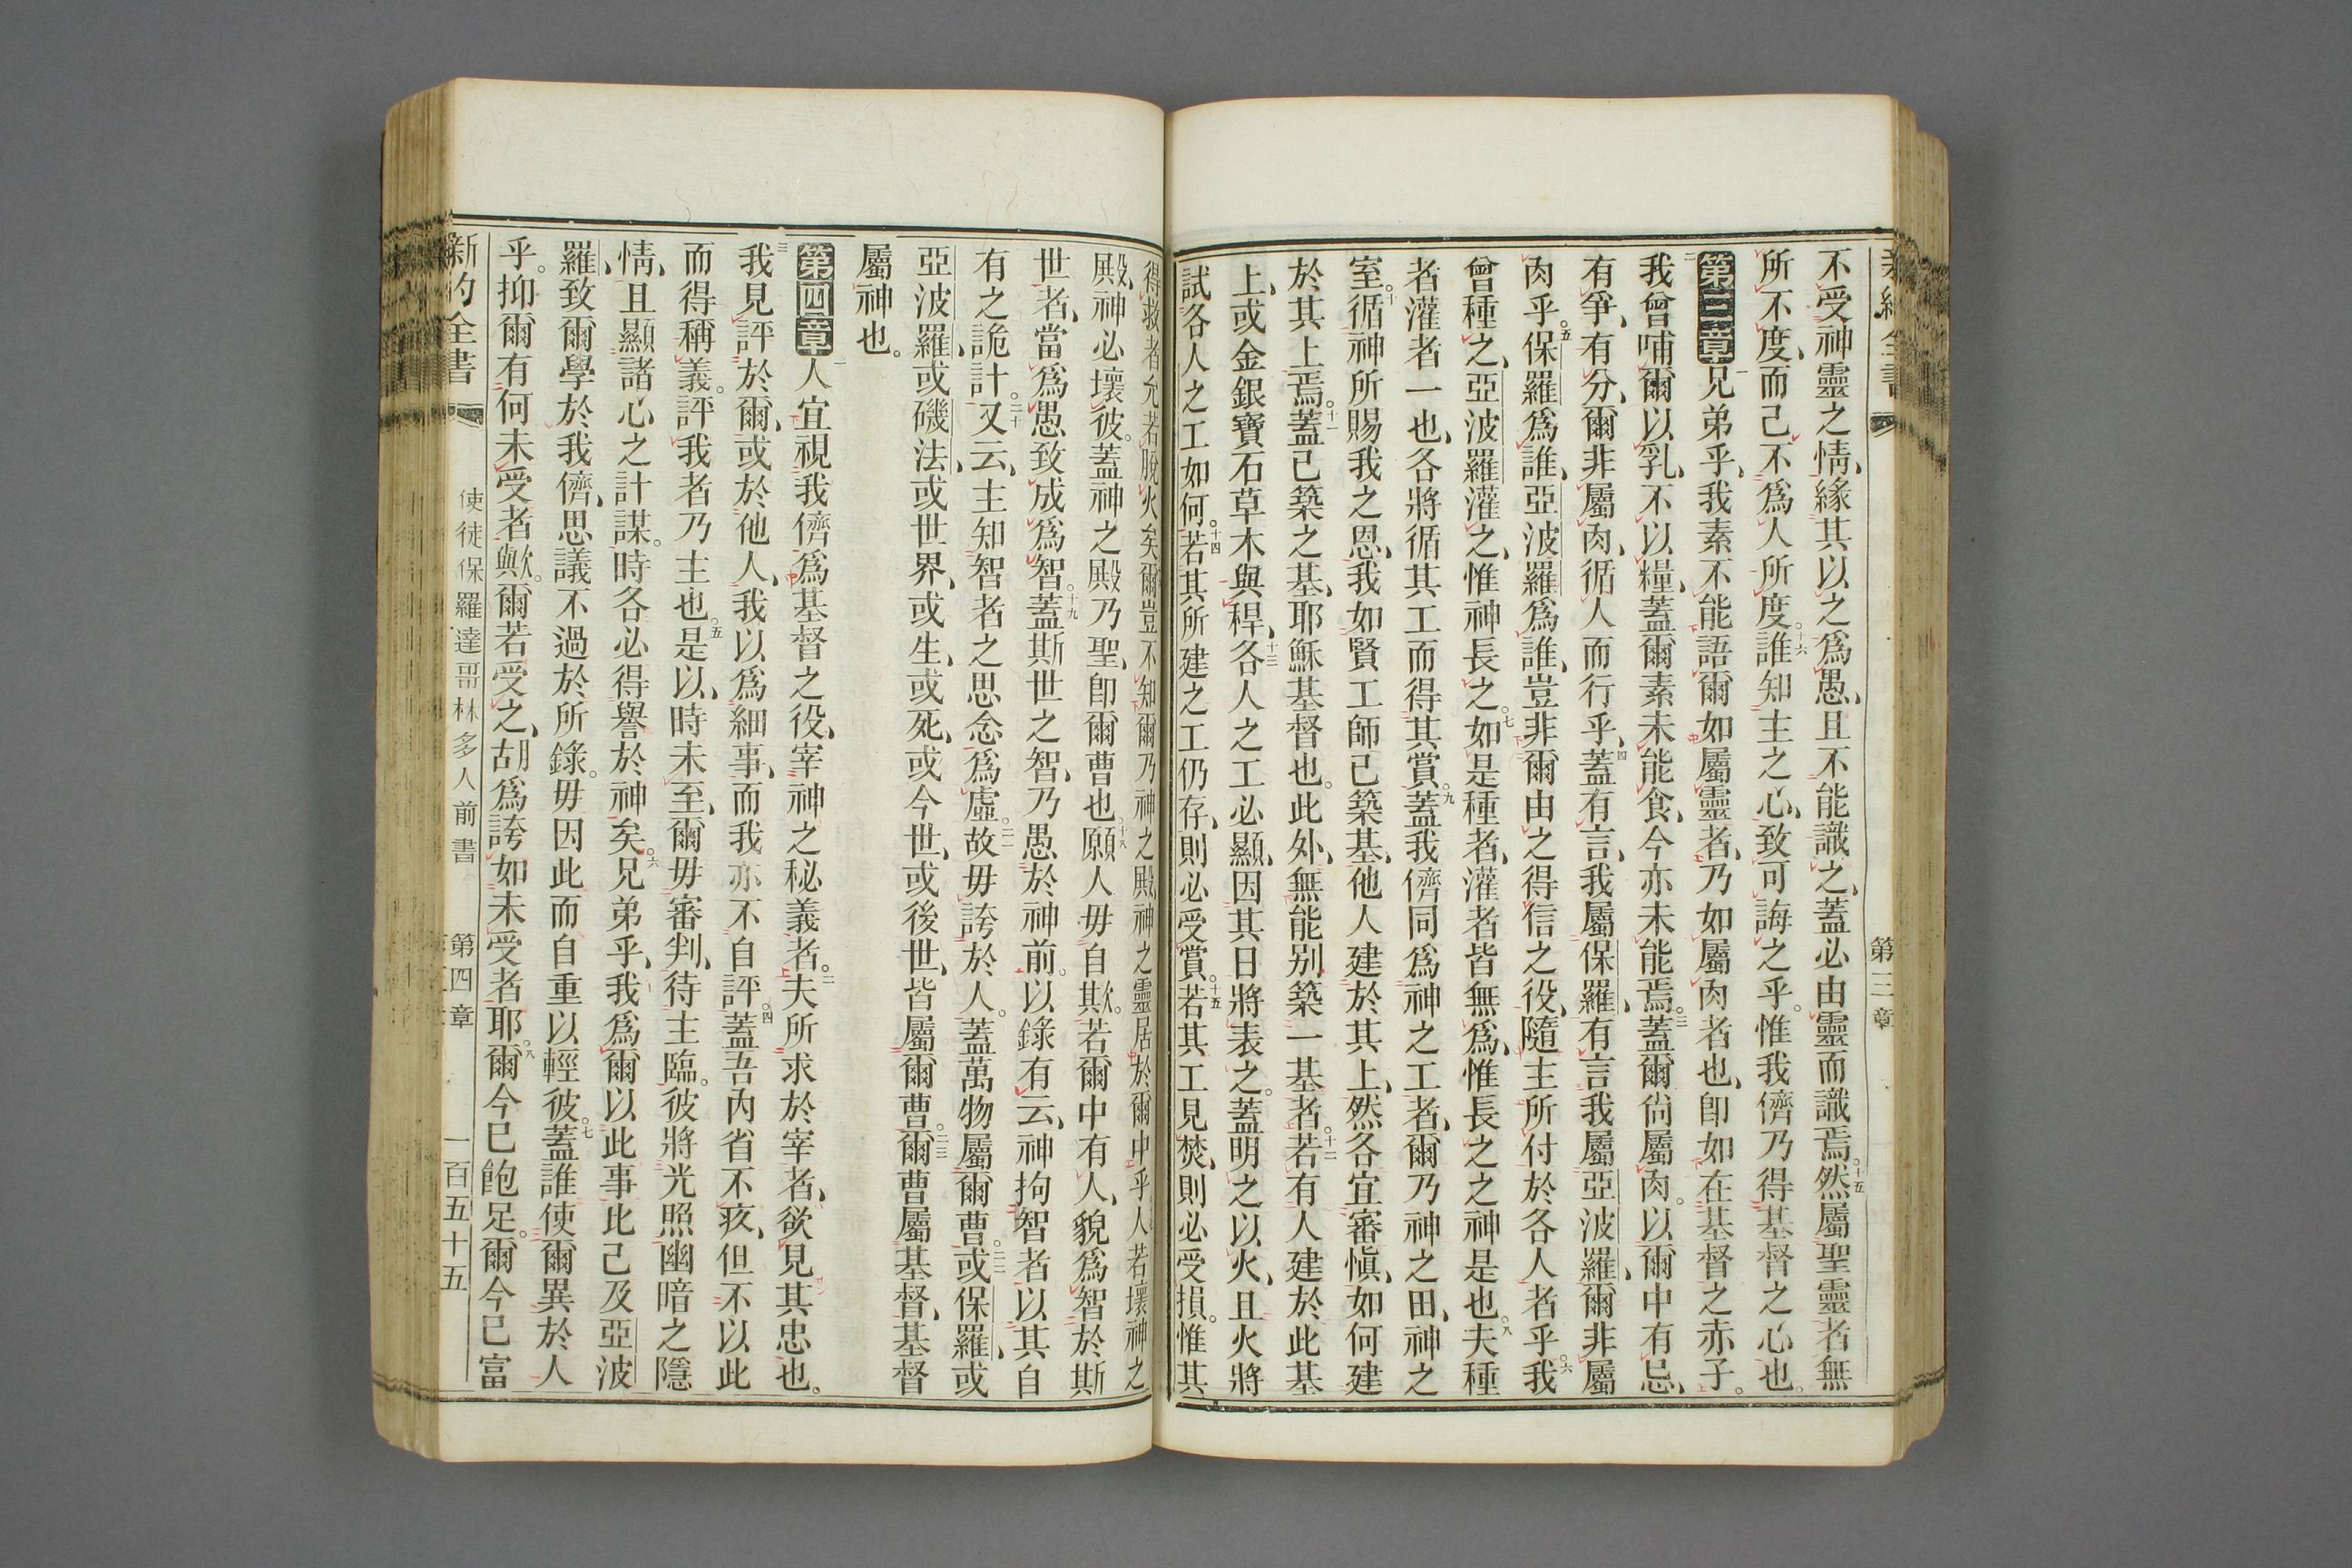 新約全書
第三章
不受神靈之情、緣其以之爲愚、且不能識之、蓋必由靈而識焉。十五然屬聖靈者無
所不度、而己不爲人所度。十六誰知主之心、致可誨之乎。惟我儕乃得基督之心也。
第三章一兄弟乎、我素不能語爾如屬靈者、乃如屬肉者也、卽如在基督之赤子。
二我曾哺爾以乳、不以糧、蓋爾素未能食、今亦未能焉。三蓋爾尙屬肉。以爾中有忌、
有爭、有分、爾非屬肉、循人而行乎、四蓋有言、我屬保羅、有言我屬亞波羅、爾非屬
肉乎。五保羅爲誰、亞波羅爲誰、豈非爾由之得信之役、隨主所付於各人者乎。六我
曾種之、亞波羅灌之、惟神長之。七如是種者、灌者皆無爲、惟長之之神是也。八夫種
者灌者一也、各將循其工而得其賞。九蓋我儕同爲神之工者、爾乃神之田、神之
室。十循神所賜我之恩、我如賢工師已築基、他人建於其上、然各宜審愼、如何建
於其上焉。十一蓋已築之基、耶穌基督也。此外、無能别築一基者。十二若有人建於此基
上、或金銀寶石草木與稈、十三各人之工必顯、因其日將表之。蓋明之以火、且火將
試各人之工如何。十四若其所建之工仍存、則必受賞。十五若其工見焚、則必受損。惟其
得救者允若脫火矣爾豈不知爾乃神之殿神之靈居於爾中乎人若壞神之
殿、神必壞彼。蓋神之殿乃聖、卽爾曹也。十八願人毋自欺。若爾中有人、貌爲智於斯
世者、當爲愚致成爲智。十九蓋斯世之智、乃愚於神前。以錄有云、神拘智者以其自
有之詭計。二十又云、主知智者之思念爲虛。二一故毋誇於人。蓋萬物屬爾曹。二二或保羅、或
亞波羅、或磯法、或世界、或生、或死、或今世、或後世、皆屬爾曹。二三爾曹屬基督、基督
屬神也。
第四章一人宜視我儕爲基督之役、宰神之秘義者。二夫所求於宰者、欲見其忠也。
三我見評於爾、或於他人、我以爲細事、而我亦不自評。四蓋吾內省不疚、但不以此
而得稱義。評我者乃主也。五是以、時未至、爾毋審判、待主臨。彼將光照幽暗之隱
情、且顯諸心之計謀。時各必得譽於神矣。六兄弟乎、我爲爾以此事比己及亞波
羅、致爾學於我儕、思議不過於所錄。毋因此而自重以輕彼。七蓋誰使爾異於人
乎。抑爾有何未受者歟。爾若受之、胡爲誇如未受者耶。八爾今已飽足。爾今已富
新約全書
使徒保羅達哥林多人前書
第四章
一百五十五